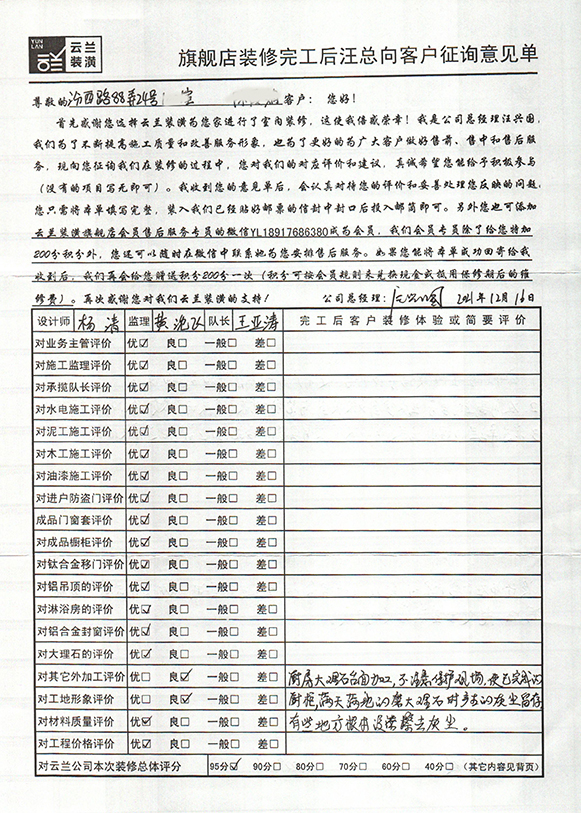 YUN LAN 云兰装潢
旗舰店装修完工后汪总向客户征询意见单
尊敬的汾西路88弄24号 室 客户： 您好！
首先感谢您选择云兰装潢为您家进行了室内装修，这使我倍感荣幸！我是公司总经理汪兴国，
我们为了不断提高施工质量和改善服务形象，也为了更好的为广大客户做好售前、售中和售后服
务，现向您征询我们在装修的过程中，您对我们的对应评价和建议，真诚希望您能给予积极参与
（没有的项目写无即可）。我收到您的意见单后，会认真对待您的评价和妥善处理您反映的问题，
您只需将本单填写完整，装入我们已经贴好邮票的信封中封口后投入邮筒即可。另外您也可添加
云兰装潢旗舰店会员售后服务专员的微信YL18917686380成为会员，我们会员专员除了给您特加
200分积分外，您还可以随时在微信中联系她为您安排售后服务。如果您能将本单成功回寄给我
收到后，我们再会给您赠送积分200分一次（积分可按会员规则来兑换现金或抵用保修期后的维
修费）。再次感谢您对我们云兰装潢的支持！ 公司总经理： 汪兴国 2021年12月16日
设计师 杨清 监理 黄 队长 王亚涛 完工后客户装修体验或简要评价
对业务主管评价 优☑ 良□ 一般□ 差□
对施工监理评价 优☑ 良□ 一般□ 差□
对承揽队长评价 优☑ 良□ 一般□ 差□
对水电施工评价 优☑ 良□ 一般□ 差□
对泥工施工评价 优☑ 良□ 一般□ 差□
对木工施工评价 优☑ 良□ 一般□ 差□
对油漆施工评价 优☑ 良□ 一般□ 差□
对进户防盗门评价 优☑ 良□ 一般□ 差□
成品门窗套评价 优☑ 良□ 一般□ 差□
对成品橱柜评价 优☑ 良□ 一般□ 差□
对钛合金移门评价 优☑ 良□ 一般□ 差□
对铝吊顶的评价 优☑ 良□ 一般□ 差□
对淋浴房的评价 优☑ 良□ 一般□ 差□
对铝合金封窗评价 优☑ 良□ 一般□ 差□
对大理石的评价 优☑ 良□ 一般□ 差□
对其它外加工评价 优□ 良☑ 一般□ 差□ 厨房大理石台面加工，不注意保护现场，使已完成的
对工地形象评价 优□ 良☑ 一般□ 差□ 厨柜，满天满地的磨大理石时产生的灰尘留存
对材料质量评价 优☑ 良□ 一般□ 差□ 有些地方根本没法擦去灰尘。
对工程价格评价 优□ 良☑ 一般□ 差□
对云兰公司本次装修总体评分 95分☑ 90分□ 80分□ 70分□ 60分□ 40分□ （其它内容见背页）